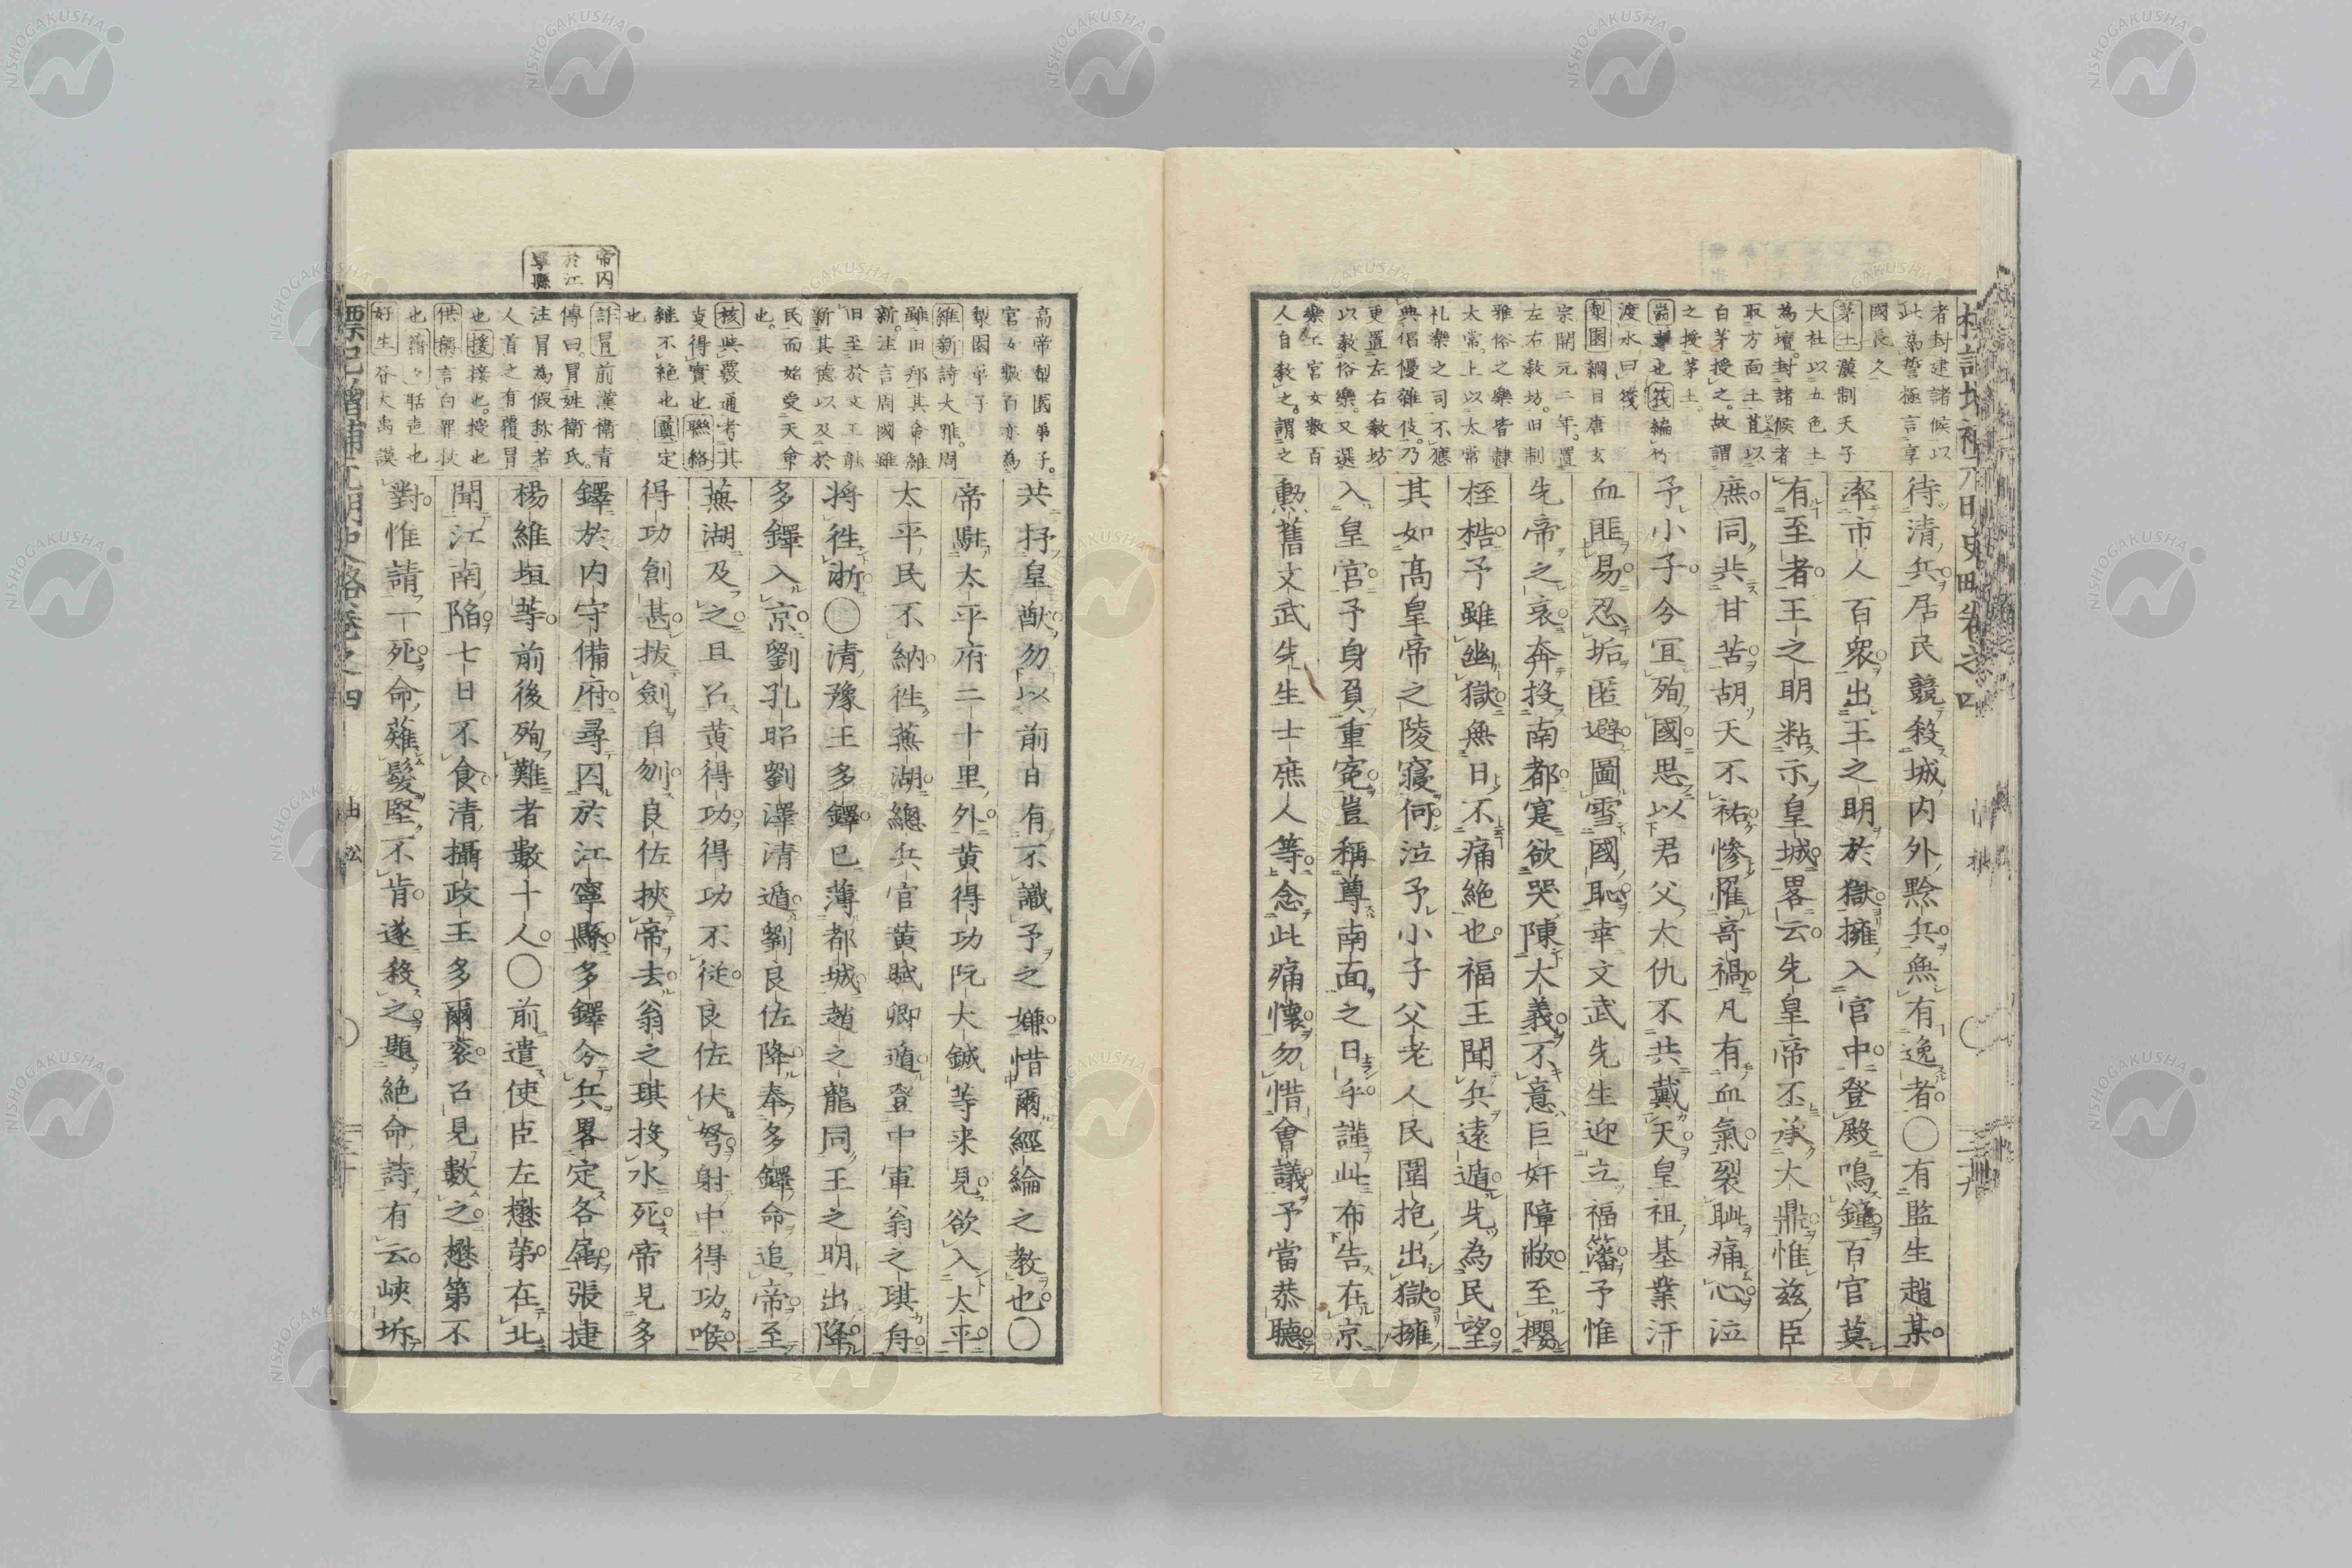 者封建諸侯以
此為誓極言享
國長久
茅土漢制天子
大社以五色土
為壇封諸侯者
取方面土苴以
白茅授之故謂
之授茅土
渡水曰筏
梨園綱目唐玄
宗開元二年置
左右教坊旧制
雅俗之樂皆隷
太常上以太常
礼樂之司不應
典倡優雜伎乃
更置左右教坊
以教俗樂又選
樂工宮女數百
人自教之謂之
待清兵居民競殺城内外黔兵無有逸者〇有監生趙某
率市人百衆出王之明於獄擁入官中登殿鳴鐘百官莫
有至者王之明粘示皇城畧云先皇帝丕承大鼎惟兹臣
庶同共甘苦胡天不祐惨罹奇禍凡有血氣裂眦痛心泣
予小子今冝殉國思以君父大仇不共戴天皇祖基業汗
血匪易忍垢匿避圖雪國恥幸文武先生迎立福藩予惟
先帝之哀奔投南都寔欲哭陳大義不意巨奸障敝至攖
桎梏予雖幽獄無日不痛絶也福王聞兵遠遁先為民望
其如高皇帝之陵寢何泣予小子父老人民圍抱出獄擁
入皇宮予身負重寃豈稱尊南面之日乎謹此布告在京
勲舊文武先生士庶人等念此痛懷勿惜會議予當恭聽
帝囚
於江
寧縣
高帝梨園弟子
官女數百亦為
梨園弟子
維新詩大雅周
雖旧邦其命維
新注言周國雖
旧至於文王能
新其德以及於
民而始受天命
也
核與覈通考其
吏得實也聯絡
継不絶也奠定
也
詐冒前漢衛青
傳曰冒姓衛氏
注冒為假称若
人首之有覆冒
也
共抒皇猷勿以前日有不識予之嫌惜爾經綸之教也〇
帝駐太平府二十里外黄得功阮大鋮等来見欲入太平
太平民不納徃蕪湖總兵官黄賦卿遁登中軍翁之琪舟
将徃浙〇清豫王多鐸已薄都城趙之龍同王之明出降
多鐸入京劉孔昭劉澤清遁劉良佐降奉多鐸命追帝至
蕪湖及之且召黄得功得功不従良佐伏弩射中得功喉
得功創甚抜劍自刎良佐挾帝去翁之琪投水死帝見多
鐸於内守備府尋囚於江寧縣多鐸分兵畧定各属張捷
楊維垣等前後殉難者數十人〇前遣使臣左懋第在北
聞江南陷七日不食清攝政王多爾衮召見數之懋第不
對惟請一死命薙髪堅不肯遂殺之題絶命詩有云峽坼